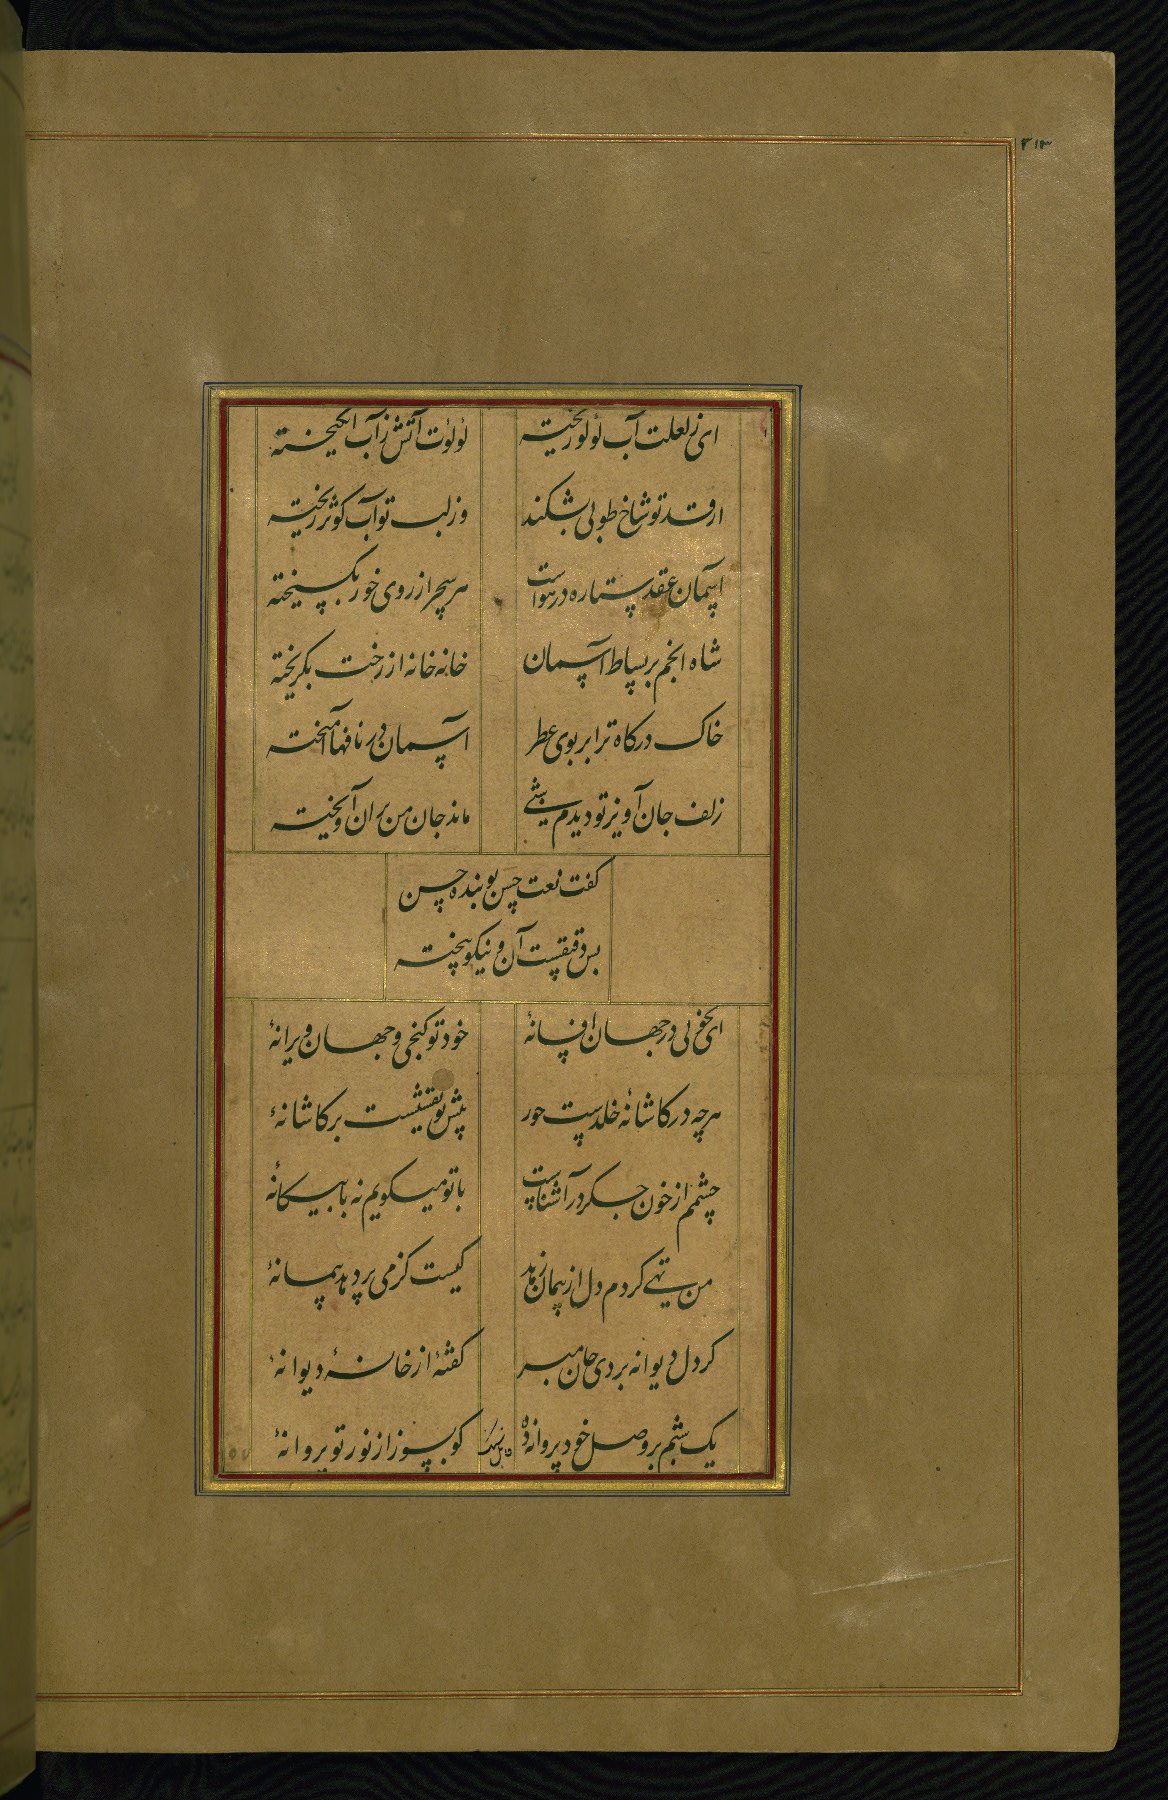 ۲۱۳
ای ز لعلت آب لولو ریخته لولوت آتش ز آب انگیخته
از قد تو شاخ طوبی بشکند وز لبت تو آب کوثر ریخته
آسمان عقد ستاره در هواست هر سحر از روی خور بگسیخته
شاه انجم بر بساط آسمان خانه خانه از رخت بگریخته
خاک درکاه ترا بر بوی عطر آسمان در نافها آمیخته
زلف جان آویز تو دیدم شبی ماند جان من بران آویخته
کفت نعت حسن تو بنده حسن
بس دقیقست آن و نیکو بیخته
ای بخوبی در جهان افسانهٔ خود تو کنجی و جهان ویرانهٔ
هرچه در کاشانهٔ خلدست حور پیش تو نقشیست بر کاشانهٔ
چشمم از خون جکر در آشناست با تو میکویم نه با بیکانهٔ
من تهی کردم دل از پیمان زهد کیست کز می پر دهد پیمانهٔ
کر دل دیوانه بردی جان مبر کفتهٔ از خانهٔ دیوانهٔ
یک شبم بر وصل خود پروانه ده کو بسوزد از نور تو پروانهٔ